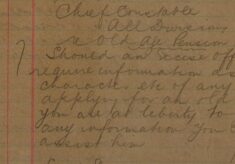 Chief Constable
All Divisions
re Old Age Pension
Should an Excise off
require information as
character etc of any
applying for an old
you are at liberty to
any information you
assist him